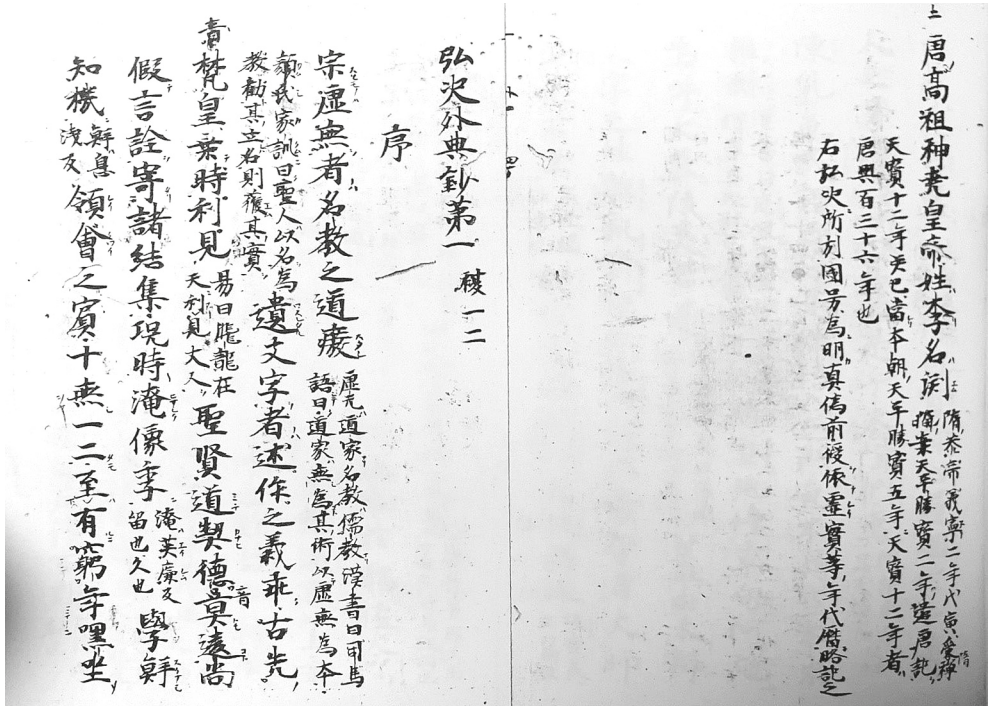 唐高祖神堯皇帝姓李名渕 隋恭帝義寧二年戊寅受禅
天平勝寳二年造唐記
天寳十二年癸巳當本朝天平勝寳五年天寳十二年者
唐興百三十六年也
右弘决所引國号為明真偽前後依霊實等年代暦略記之
弘决外典鈔第一 複一二
序
宗虚無者名教之道癈 虚无道家名教儒教漢書曰司馬
語曰道家無為其術以虚無為本
顔氏家訓曰聖人以名為
教勧其立名則獲其實 遺文字者述作之義乖古先
梵皇乗時利見 易曰飛龍在
天利見大人 聖賢道契德音莫遠尚
假言詮寄諸結集況時淹像季 淹英廉反
留也久也 學鮮
知機 鮮息
淺反 領會之賓十無一二至有窮年嘿坐